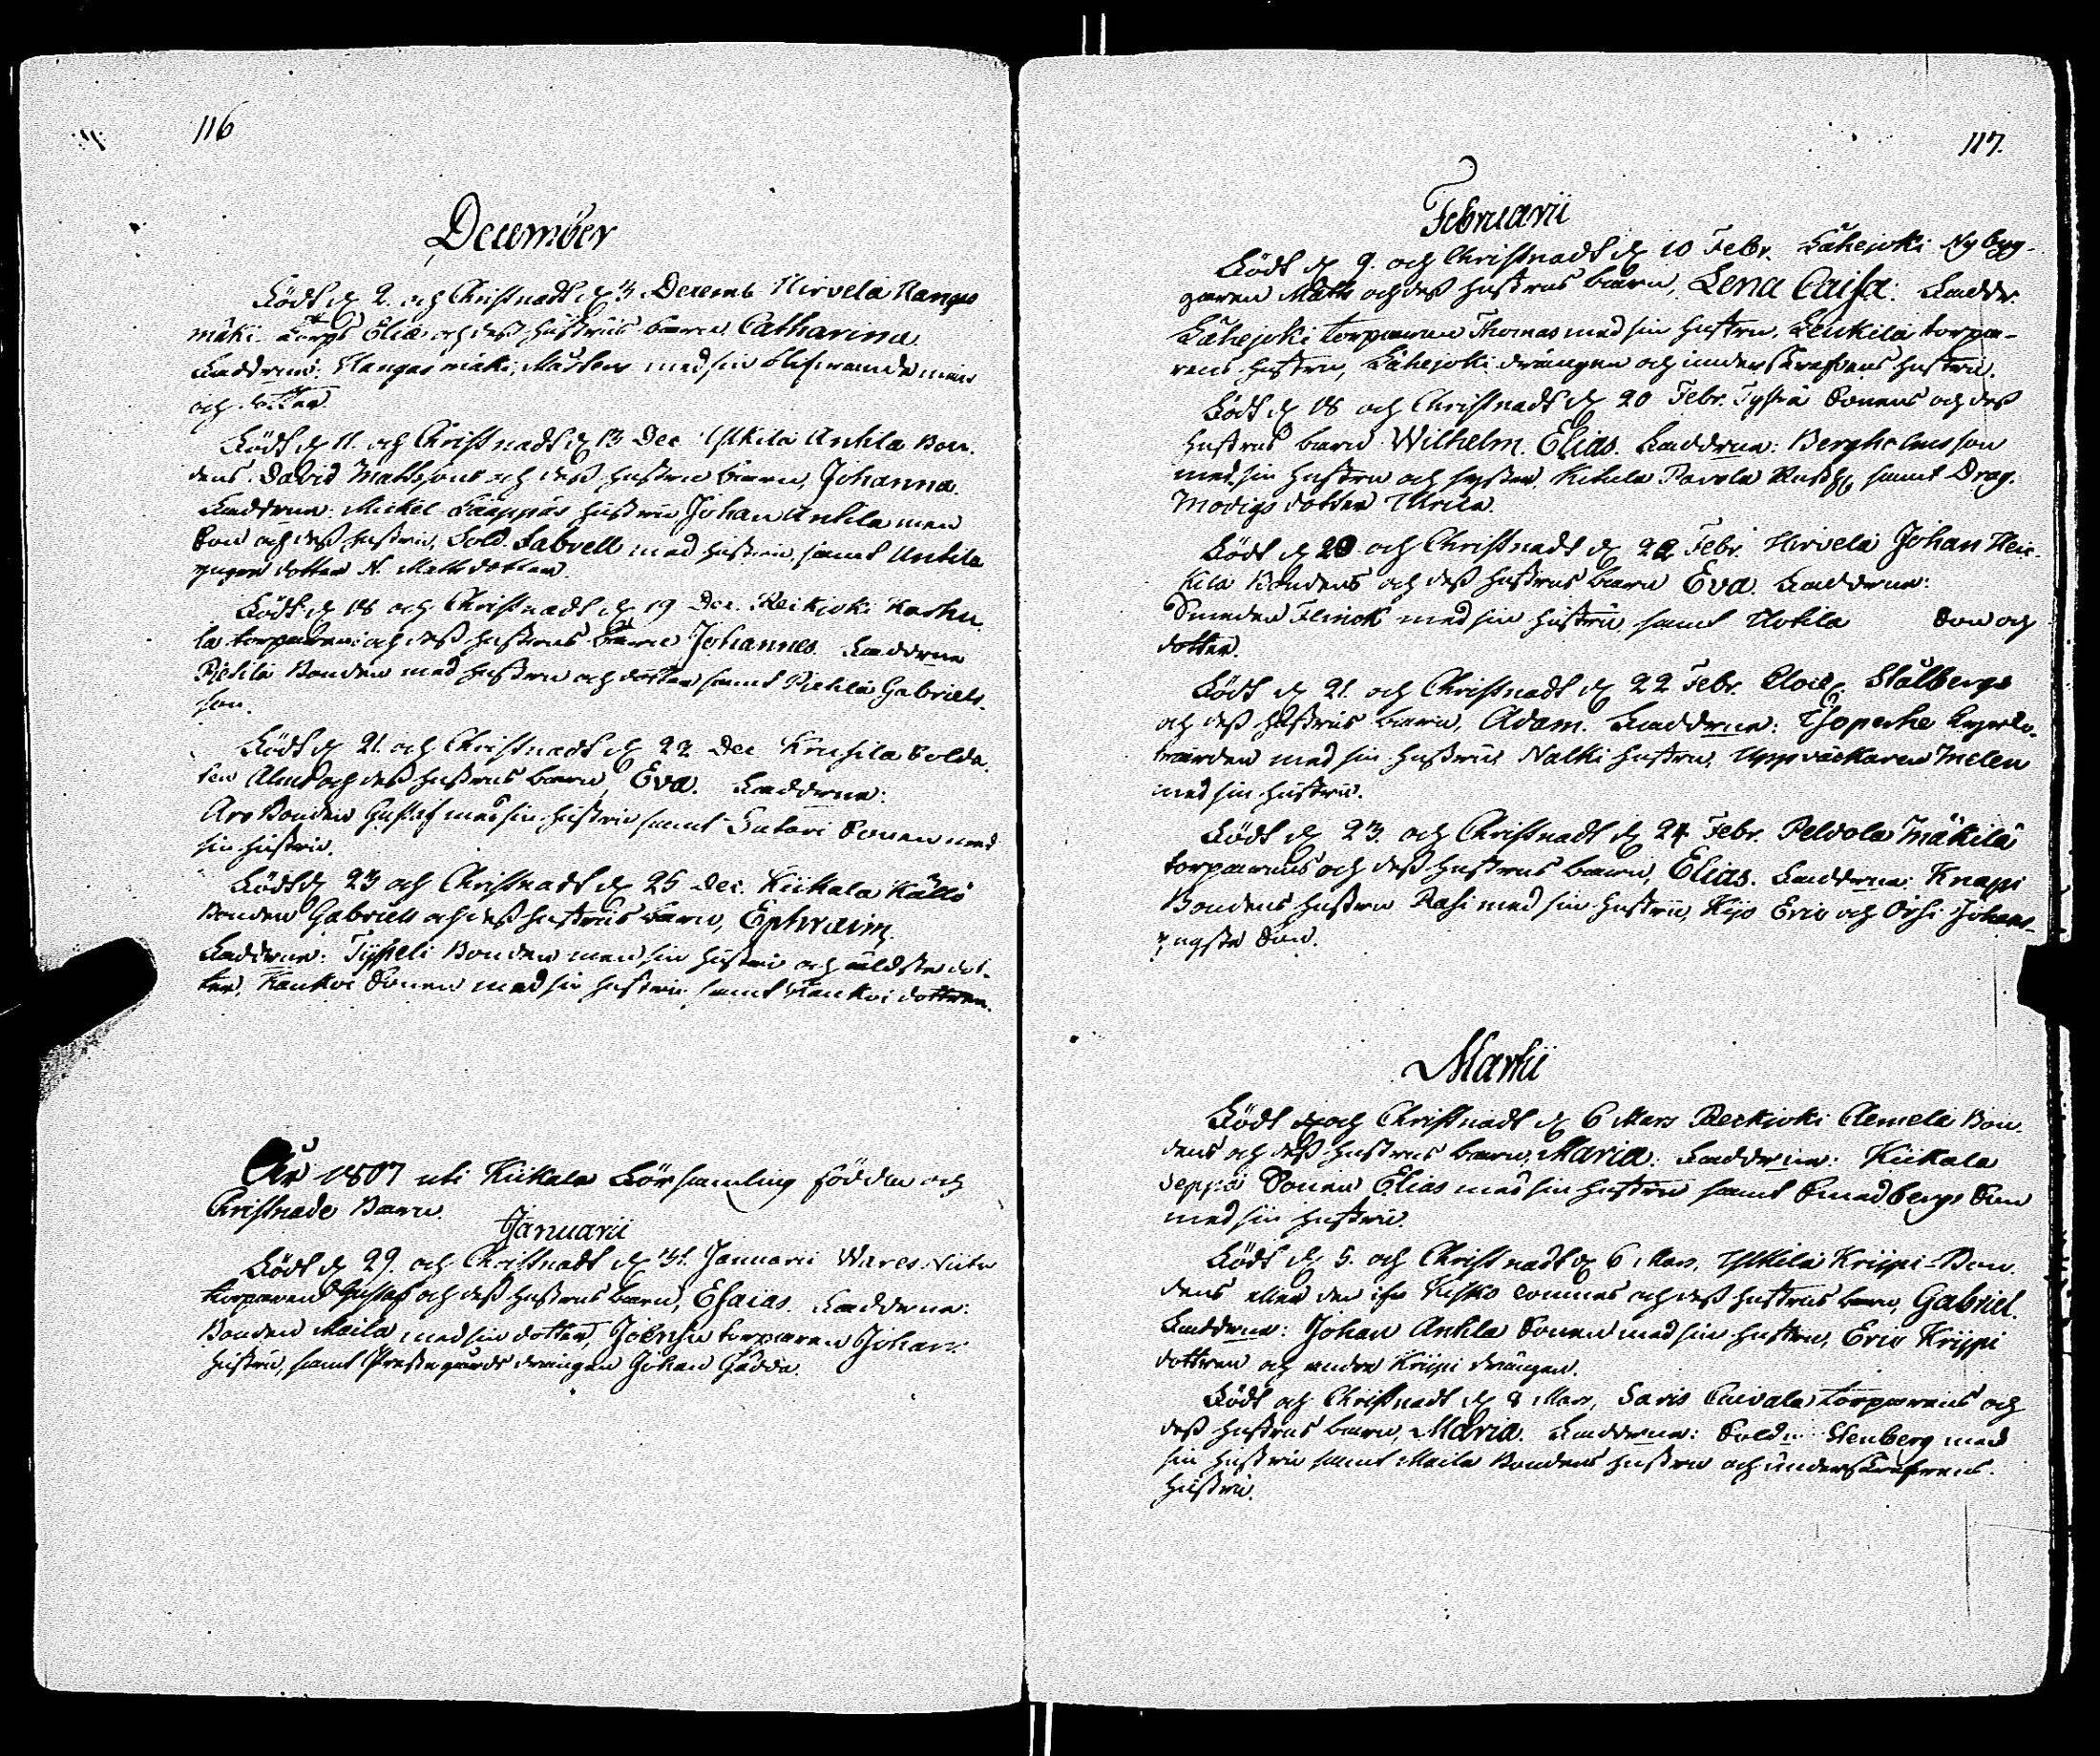 116
December
Födt d. 2. och Christnadt d. 3 Decemb Hirvelä Kangas
mäki Torps Elia och dess hustrus barn Catharina
Faddrne: Kangasmäki, Mosters med sin man
och dotter.
Födt d. 11. och Christnadt d. 13 Dec Yltkilä Antila Bon-
dens David Mattssons och dess hustrus barn, Johanna.
Faddrne: Michel hustru Johan Antila
Son och dess hustru, Sold. Labvell med hustru, samt Antila
yngre dotter N. Matts dotter.
Födt d. 18 och Christnadt d. 19 Dec. Reikioki Karhu-
la torparens och dess hustrus barn Johannes. Faddrne
Pietilä Bonden med hustru och dotter samt Pietilä Gabriels
son.
Födt d. 21. och Christnadt d. 22 Dec Krusila Solda-
ten Almt och dess hustrus barn, Eva. Faddrne:
Aro Bonden Gustaf med sin hustru samt Satari Sonen med
sin hustru.
Födt d. 23 och Christnadt d. 25 Dec. Kiikala Källö
Bonden Gabriell och dess hustrus barn, Ephraim.
Faddrne: Tyysteli Bonden med sin hustru och äldste dot-
ter, Kankoi Sonen med sin hustru samt Kankoi dottren.
År 1807 uti Kiikala Församling födda och
Christnade Barn.
Januarii
Födt d. 29. och Christnadt d. 31. Januarii Wares Niitu
torparen Gustaf och dess hustrus barn, Esaias. Faddrne:
Bonden Maila med sin dotter, torparen Johans
hustru, samt Prestegårds drängen Johan Gädda.
117.
Februarii
Födt d. 9. och Christnadt d. 10 Febr. Lähejoki Nybyg-
garen Matts och dess hustrus barn, Lena Caisa: Faddr.
Lähejoki torparen Thomas med sin hustru, Leukila torpa-
rens hustru, Lähejoki drängen och underskrefvens hustru.
Födt d. 18 och Christnadt d. 20 Febr. Sonens och dess
hustrus barn Wilhelm Elias. Faddrne: Bergholms son
med sin hustru och syster, Kitula Pavola samt Drag.
Modigs dotter Ulrica.
Födt d. 20 och Christnadt d. 22 Febr. Hirvelä Johan Hei-
kila Bondens och dess hustrus barn Eva. Faddrne:
Smeden Flinck med sin hustru samt Uotila Son och
dotter.
Födt d. 21. och Christnadt d. 22 Febr. Stålbergs
och dess hustrus barn, Adam. Faddrne: Isoperhe
värden med sin hustru, Nalki hustru, Uppväckaren Melen
med sin hustru.
Födt d. 23. och Christnadt d. 24 Febr. Peldola Mäkilä
torparens och dess hustrus barn, Elias. Faddrne: Knapi
Bondens hustru Rahi med sin hustru, Kijo Eric och Orhi Johans
yngste Son.
Martii
Födt och Christnadt d. 6 Mars Reekioki Clemela Bon-
dens och dess hustrus barn, Maria. Faddrne: Kiikala
Seppä Sonen Elias med sin hustru samt Smedbergs Son
med sin hustru.
Födt d. 5. och Christnadt d. 6 Mars, Yltkilä Krijpi-Bon-
dens eller den Kisko och dess hustrus barn, Gabriel.
Faddrne: Johan Antila Sonen med sin hustru, Eric Krijpi
dottren och andre Krijpi drängen.
Födt och Christnadt d. 8 Mars, Saris torparens och
dess hustrus barn, Maria. Faddrne: Solda Stenberg med
sin hustru samt Maila Bondens hustru och underskrefvens
hustru.